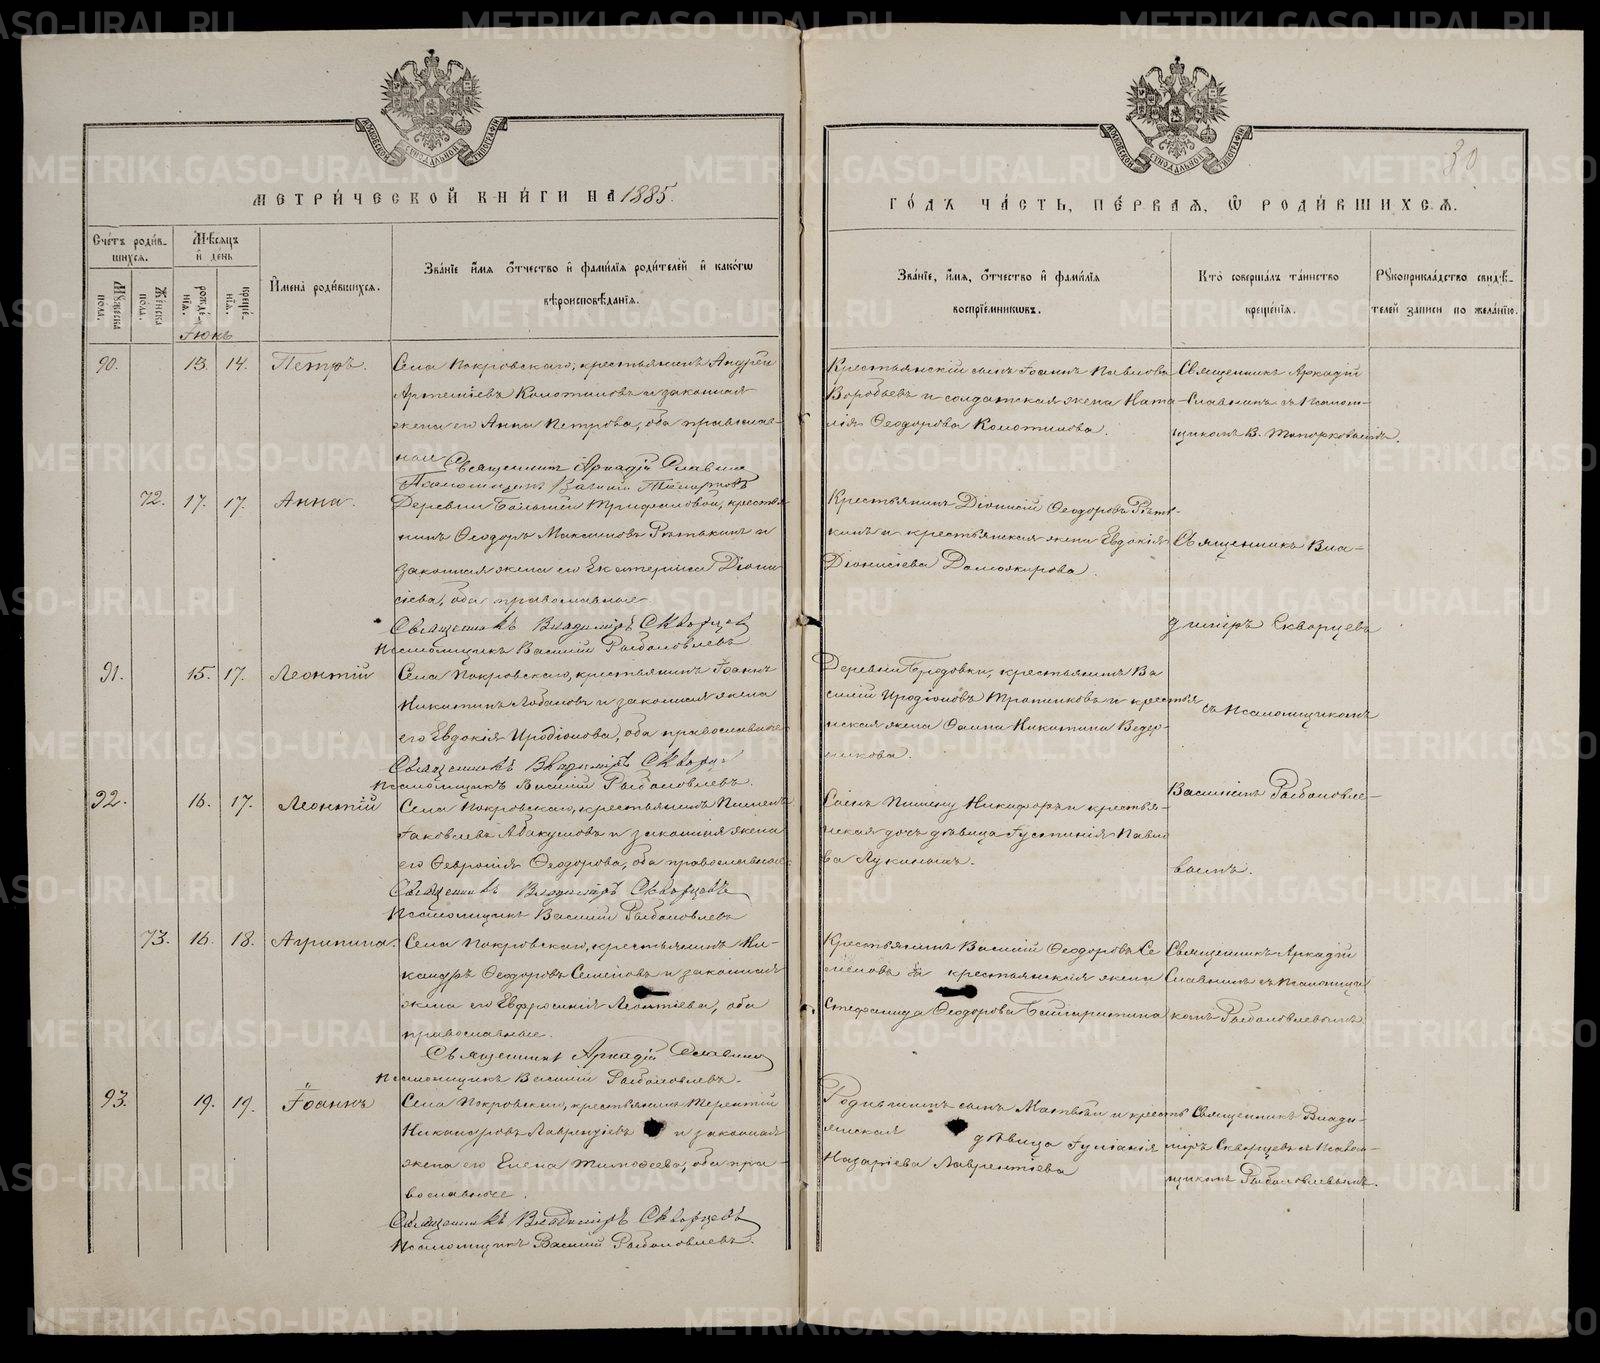 METRIKI.GASO-URAL.RU
МОСКОВСКОЙ СѴНОДАЛЬНОЙ ТИПОГРАФІИ
МОСКОВСКОЙ СѴНОДАЛЬНОЙ ТИПОГРАФІИ
30
МЕТРИ́ЧЕСКОЙ КНИ́ГИ НА 1885.
ГО́ДЪ ЧА́СТЬ, ПЕ́РВАЯ, Ѽ РОДИ́ВШИХСЯ.
Сче́тъ роди́в-
шихся.
Мѣ́сяцъ
и҆ де́нь
Мꙋ́жеска пола.
Же́нска пола.
рожде́-
нія.
креще́-
нія.
И҆мена̀ роди́вшихся.
Зва́нїе и҆́мя ѻ҆́тчество и҆ фами́лїя роди́телей и҆ како́гѡ
вѣроисповѣ́данїя.
Зва́нїе, и҆́мя, ѻ҆́тчество и҆ фами́лїя
воспрїе́мникѡвъ.
Кто̀ соверша́лъ та́инство
креще́нїя.
Рꙋкоприкла́дство свидѣ́-
телей записи по жела́нїю.
Іюнь
90. 13. 14. Петръ.
Села Покровскаго, крестьянинъ Андрей
Артеміевъ Колотиловъ и законная
жена его Анна Петрова, оба православ-
ные
Священникъ Аркадій Славнинъ
Крестьянскій сынъ Іоаннъ Павлова
Воробьевъ и солдатская жена Ната-
лія Ѳеодорова Колотилова.
Священникъ Аркадій
Славнинъ съ Псаломщ-
щикомъ В. Топорковымъ.
72. 17. 17. Анна.
Деревни Большой Трифоновой, крестья-
нинъ Ѳеодоръ Максимовъ Рѣтькинъ и
законная жена его Екатерина Діони-
сіева, оба православные
Священникъ Владиміръ Скворцевъ
Псаломщикъ Василій Рыболовлевъ
Крестьянинъ Діонисій Ѳеодоровъ Рѣть-
кинъ и крестьянская жена Евдокія
Діонисіева Доможирова.
Священникъ Вла-
диміръ Скворцевъ
91. 15. 17. Леонтій
Села Покровскаго, крестьянинъ Іоаннъ
Никитинъ Лобановъ и законная жена
его Евдокія Иродіонова, оба православные
Священникъ Владиміръ Скворц
Псаломщикъ Василій Рыболовлевъ.
Деревни Бродовки, крестьянинъ Ва
силій Иродіоновъ и крестья
нская жена Никитина Ведер-
никова.
съ Псаломщикомъ
92. 16. 17. Леонтій
Села Покровскаго, крестьянинъ Пименъ
Іаковлевъ Абакумовъ и законная жена
его Ѳевронія Ѳеодорова, оба православные
Священникъ Владиміръ Скворцевъ
Псаломщикъ Василій Рыболовлевъ
Сынъ Пимену Никифоръ и крестья-
нская дочь дѣвица Іустинія Павло
ва Лукиныхъ.
Василіемъ Рыболовле-
вымъ.
73. 16. 18. Агрипина.
Села Покровскаго, крестьянинъ Ни-
кандръ Ѳеодоровъ Семёновъ и законная
жена его Евфросинія Леонтіева, оба
православные.
Священникъ Аркадій Славнинъ
Псаломщикъ Василій Рыболовлевъ.
Крестьянинъ Василій Ѳеодоровъ Се
мёновъ и крестьянская жена
Стефанида Ѳеодорова
Священникъ Аркадій
Славнинъ съ псаломщи
комъ Рыболовлевымъ.
93. 19. 19. Іоаннъ
Села Покровскаго, крестьянинъ Терентій
Никаноровъ Лаврентіевъ и законная
жена его Елена Тимоѳеева, оба пра-
вославные.
Священникъ Владиміръ Скворцевъ
Псаломщикъ Василій Рыболовлевъ.
Родившимъ сынъ Матвѣй и кресть
янская дѣвица Іуліанія
Назаріева Лаврентіева
Священникъ Влади-
міръ Скворцевъ съ Псалом-
щикомъ Рыболовлевымъ.